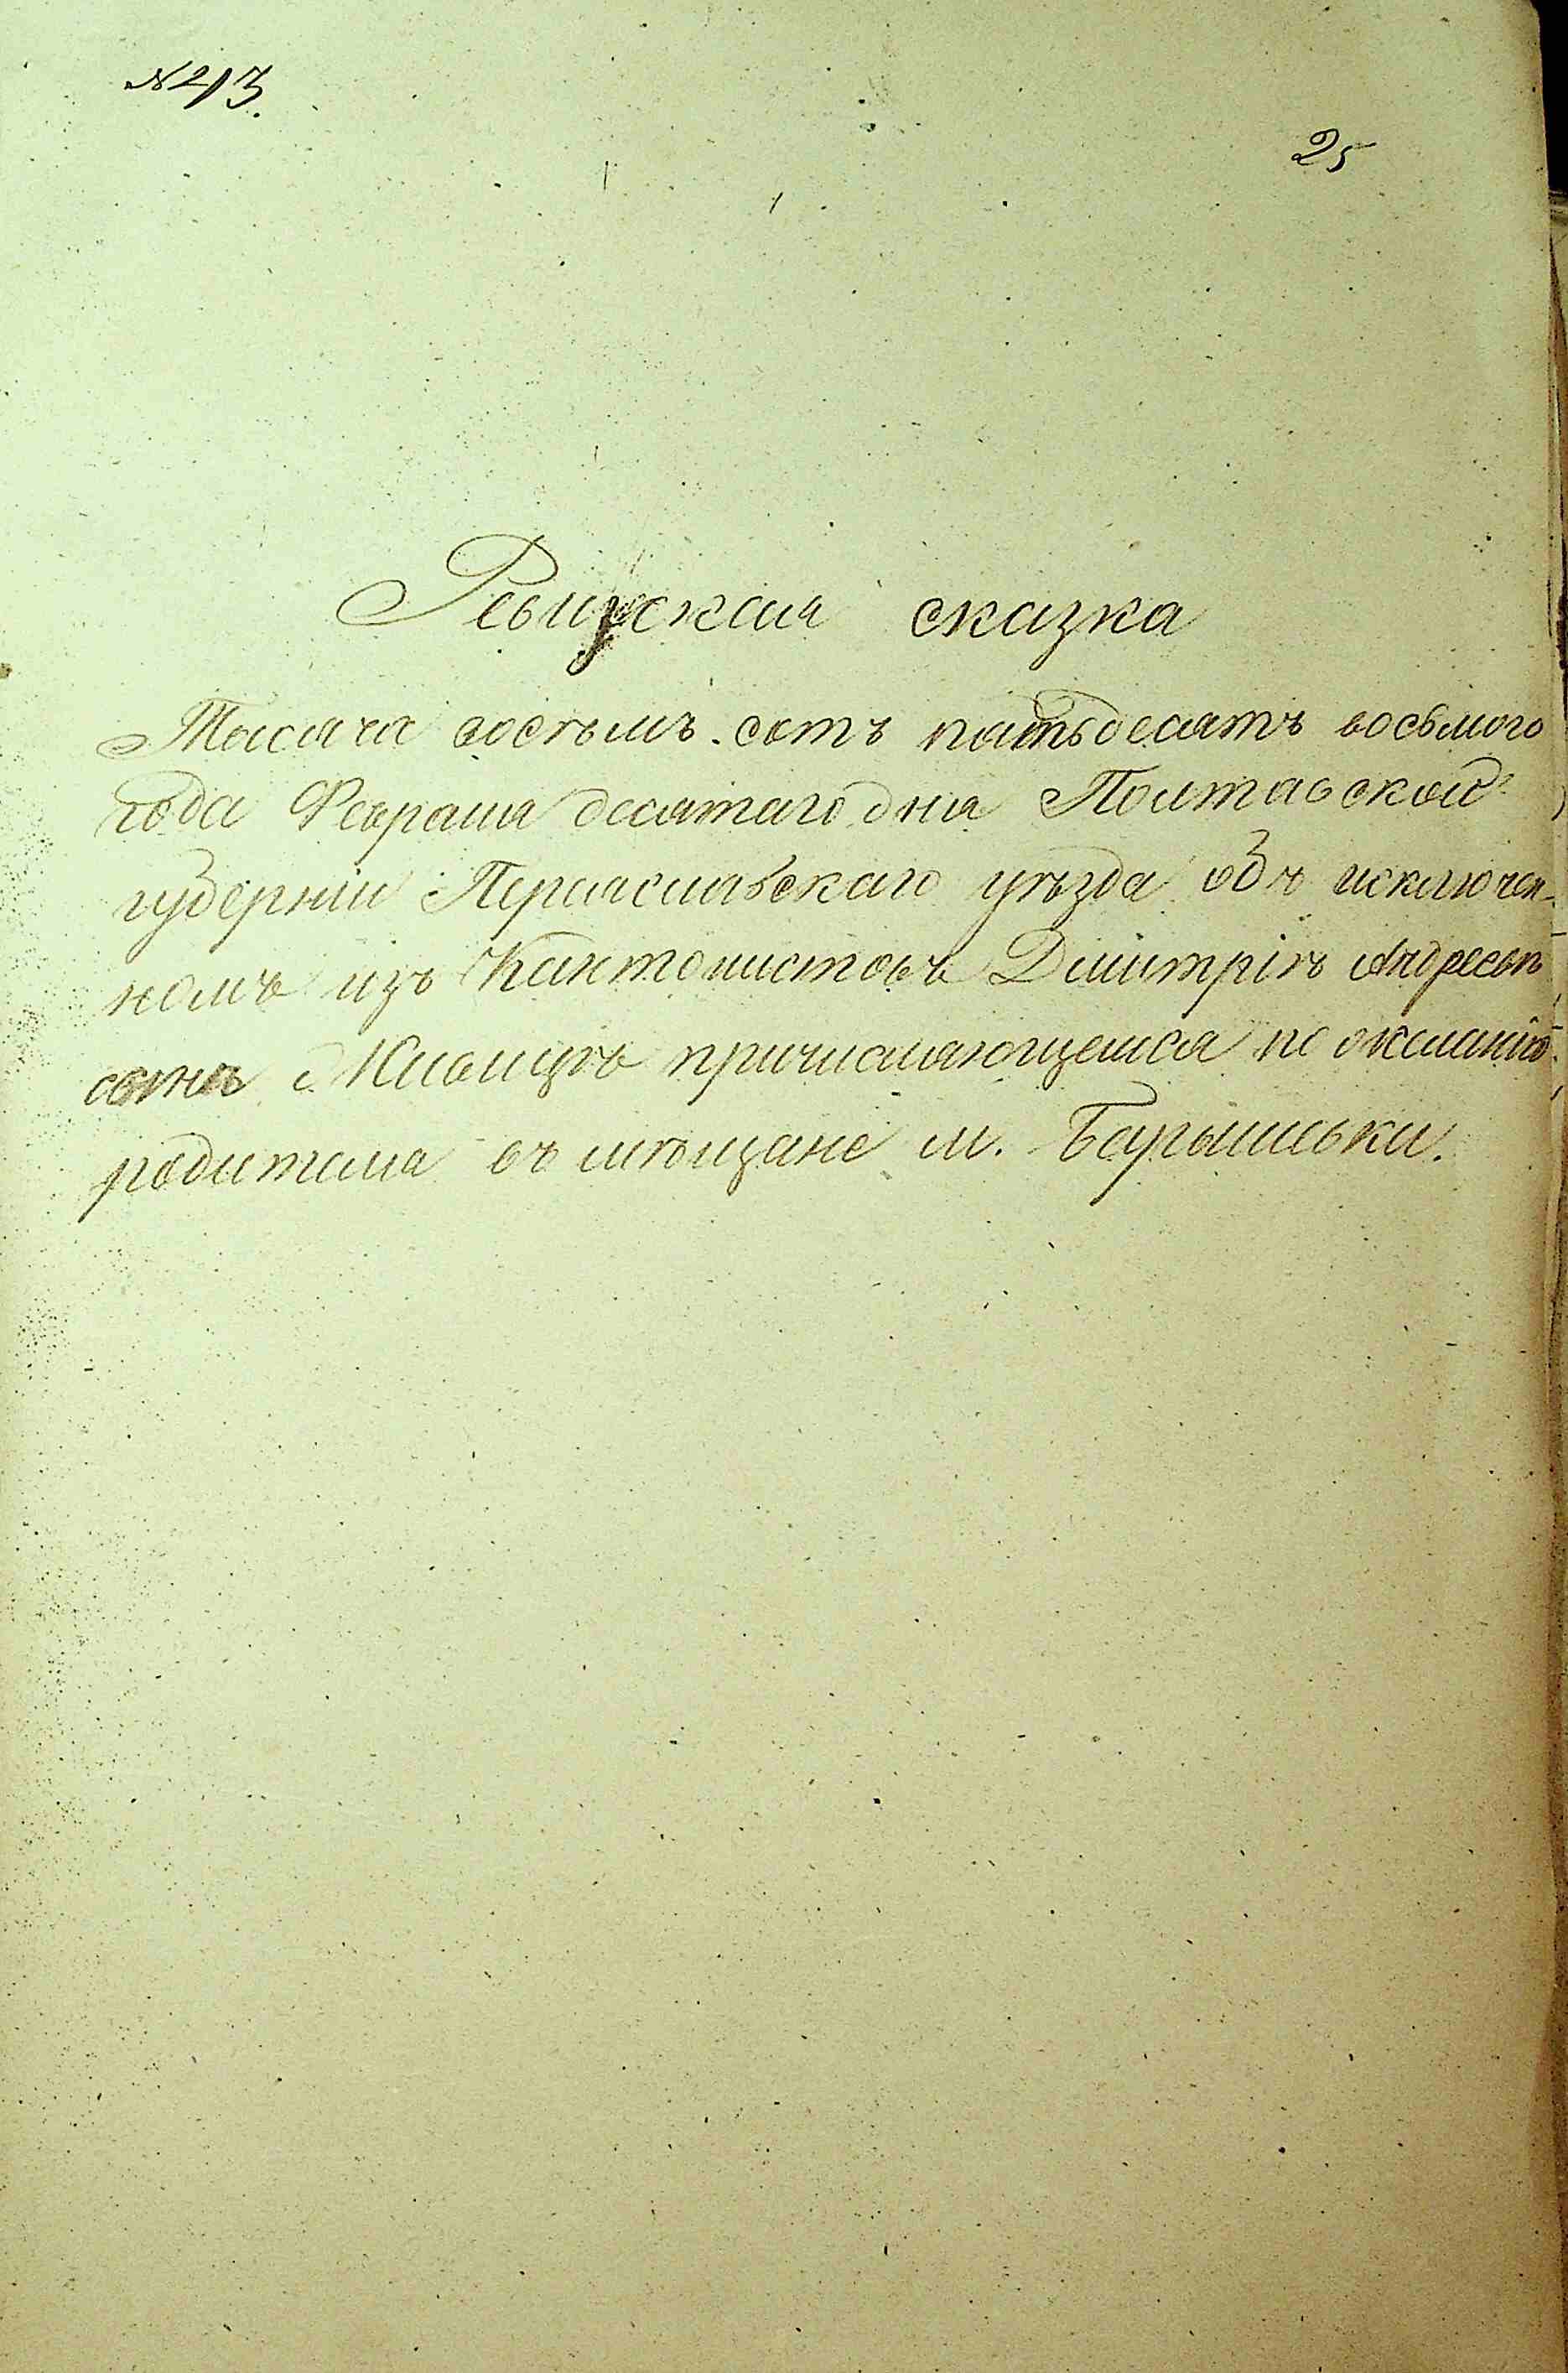 № 213.
25
Ревизская сказка
Тысяча восемъ сотъ пятьдесятъ восьмого
года Февраля десятаго дня Полтавской
губерніи Переяславскаго уѣзда объ исключен-
номъ изъ Кантонистовъ Дмитріѣ Андреевѣ
сынѣ причисляющемся по желанію
родителя въ мѣщане м. Барышевки.